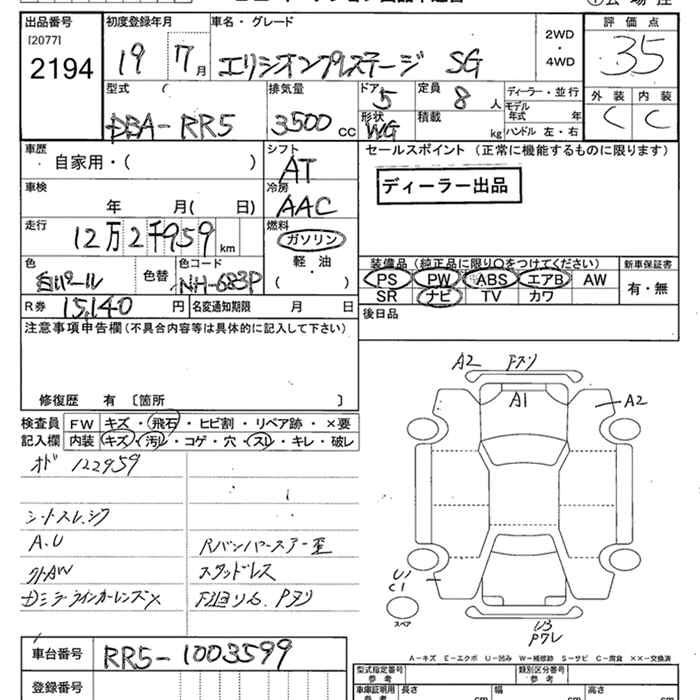 出品番号 初度登録年月 車名・グレード 評価点
[2077] 2194 19 7月 エリシオンプレステージ SG 2WD・4WD 35
型式 排気量 ドア 定員 ディーラー・並行 外装 内装
DBA-RR5 3500cc 5 8人 モデル年式 年 C C
形状 WG 積載 kg ハンドル 左・右
車歴 シフト セールスポイント (正常に機能するものに限ります)
自家用・( ) AT
ディーラー出品
車検 冷房
年 月( 日) AAC
走行 燃料
12万2千959km ガソリン
軽・油
( )
色 色替 色コード 装備品 (純正品に限り○をつけてください) 新車保証書
白パール NH-683P PS PW ABS エアB AW 有・無
SR ナビ TV カワ
R券 15,140円 名変通知期限 月 日 後日品
注意事項申告欄 (不具合内容等は具体的に記入して下さい)
修復歴 有 〔箇所 〕
検査員 FW キズ・飛石・ヒビ割・リペア跡・×要
記入欄 内装 キズ・汚レ・コゲ・穴・スレ・キレ・破レ
A2 Fスリ
A1 A2
オド 122959
シートスレ、シワ
A.U Rバンパースアー歪
外AW スタッドレス
ミラーウインカーレンズX
U1
C1
スペア
U3
Pワレ
A－キズ E－エクボ U－凹み W－補修跡 S－サビ C－腐食 ××－交換済
車台番号 RR5-1003599
型式指定番号 類別区分番号
参考 参考
登録番号
車庫証明用 長さ 幅 高さ
参考 cm cm cm